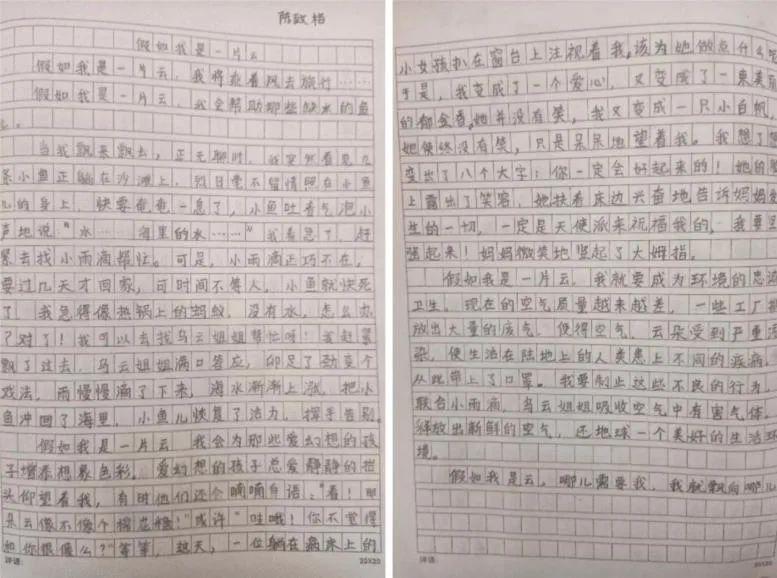 陈政楷
假如我是一片云
假如我是一片云，我将乘着风去旅行……
假如我是一片云，我会帮助那些缺水的鱼
当我飘来飘去，正无聊时，我突然看见几
条小鱼正躺在沙滩上，烈日毫不留情照在小鱼
儿的身上，快要奄奄一息了，小鱼吐着气泡小
声地说："水……海里的水……"我着急了，赶
紧去找小雨滴帮忙。可是，小雨滴正巧不在，
要过几天才回家，可时间不等人，小鱼就快死
了，我急得像热锅上的蚂蚁，没有水，怎么办
？对了！我可以去找乌云姐姐帮忙呀！我赶紧
飘了过去，乌云姐姐满口答应，卯足了劲变个
戏法，雨慢慢滴了下来，海水渐渐上涨，把小
鱼冲回了海里，小鱼儿恢复了活力，挥手告别。
假如我是一片云，我会为那些爱幻想的孩
子增添想象色彩。爱幻想的孩子总爱静静的抬
头仰望着我，有时他们还个喃喃自语："看！那
朵云像不像个棉花糖！"或许"哇哦！你不觉得
和你很像么？"等等，这天，一位躺在病床上的
评语：
20X20
小女孩扒在窗台上注视着我，该为她做点什么呢
于是，我变成了一个爱心，又变成了一束美丽
的郁金香，她并没有笑，我又变成一只小白帆，
她使终没有笑，只是呆呆地望着我。我想了想
变出了八个大字：你一定会好起来的！她的脸
上露出了笑容，她扶着床边兴奋地告诉妈妈发
生的一切，一定是天使派来祝福我的，我要坚
强起来！妈妈微笑地竖起了大姆指。
假如我是一片云，我就要成为环境的忠诚
卫生。现在的空气质量越来越差，一些工厂排
放出大量的废气，使得空气、云朵受到严重污
染，使生活在陆地上的人类患上不同的疾病，
从此带上了口罩。我要制止这些不良的行为，
联合小雨滴，乌云姐姐吸收空气中有害气体，
释放出新鲜的空气，还地球一个美好的生活环
境。
假如我是云，哪儿需要我，我就飘向哪儿
评语：
20X20